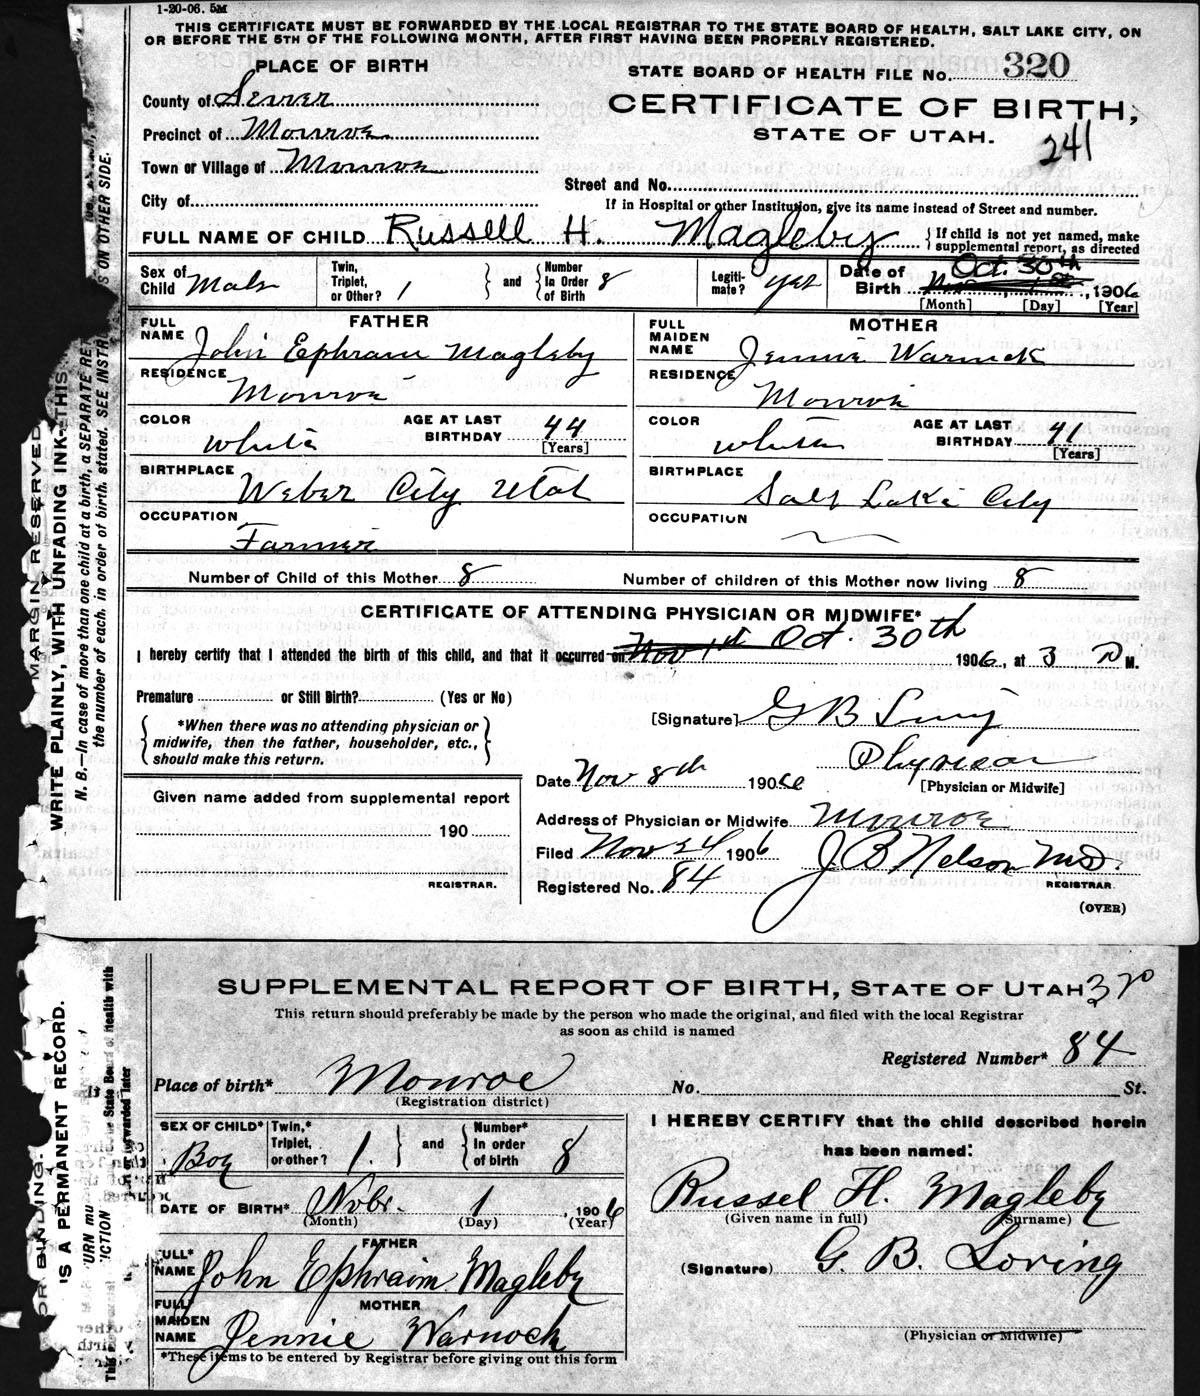 1-20-06. 5M
THIS CERTIFICATE MUST BE FORWARDED BY THE LOCAL REGISTRAR TO THE STATE BOARD OF HEALTH, SALT LAKE CITY, ON
OR BEFORE THE 5TH OF THE FOLLOWING MONTH, AFTER FIRST HAVING BEEN PROPERLY REGISTERED.
PLACE OF BIRTH
STATE BOARD OF HEALTH FILE No. 320
County of Sevier
CERTIFICATE OF BIRTH,
Precinct of Monroe
STATE OF UTAH.
241
Town or Village of Monroe
Street and No.
City of
If in Hospital or other Institution, give its name instead of Street and number.
FULL NAME OF CHILD Russell H. Magleby
{ If child is not yet named, make
supplemental report, as directed
Sex of Child Male
Twin, Triplet, or Other? 1
and
Number In Order of Birth 8
Legiti-mate? yes
Date of Birth Oct. 30th, 1906
[Month] [Day] [Year]
FATHER
FULL NAME John Ephram Magleby
RESIDENCE Monroe
COLOR White
AGE AT LAST BIRTHDAY 44 [Years]
BIRTHPLACE Weber City Utah
OCCUPATION Farmer
MOTHER
FULL MAIDEN NAME Jennie Warnock
RESIDENCE Monroe
COLOR White
AGE AT LAST BIRTHDAY 41 [Years]
BIRTHPLACE Salt Lake City
OCCUPATION
Number of Child of this Mother 8 Number of children of this Mother now living 8
CERTIFICATE OF ATTENDING PHYSICIAN OR MIDWIFE*
I hereby certify that I attended the birth of this child, and that it occurred on Nov 1st Oct. 30th 1906, at 3 P M.
Premature or Still Birth? (Yes or No)
*When there was no attending physician or
midwife, then the father, householder, etc.,
should make this return.
[Signature] G B Loring
Physician
[Physician or Midwife]
Date Nov 8th 1906
Given name added from supplemental report
190
REGISTRAR.
Address of Physician or Midwife Monroe
Filed Nov 24 1906
J. B Nelson MD.
Registered No. 84
REGISTRAR.
(OVER)
MARGIN RESERVED
OR BINDING.
WRITE PLAINLY, WITH UNFADING INK—THIS
IS A PERMANENT RECORD.
N. B.—In case of more than one child at a birth, a SEPARATE RET
the number of each, in order of birth, stated. SEE INSTR
S ON OTHER SIDE.
SUPPLEMENTAL REPORT OF BIRTH, STATE OF UTAH 320
This return should preferably be made by the person who made the original, and filed with the local Registrar
as soon as child is named
Registered Number* 84
Place of birth* Monroe No. St.
(Registration district)
SEX OF CHILD* Boy
Twin,* Triplet, or other? 1.
and
Number* In order of birth 8
DATE OF BIRTH* Nvbr. 1, 1906
(Month) (Day) (Year)
FATHER
FULL* NAME John Ephraim Magleby
MOTHER
FULL* MAIDEN NAME Jennie Warnock
*These items to be entered by Registrar before giving out this form
I HEREBY CERTIFY that the child described herein
has been named:
Russel H. Magleby
(Given name in full) (Surname)
(Signature) G. B. Loring
(Physician or Midwife)